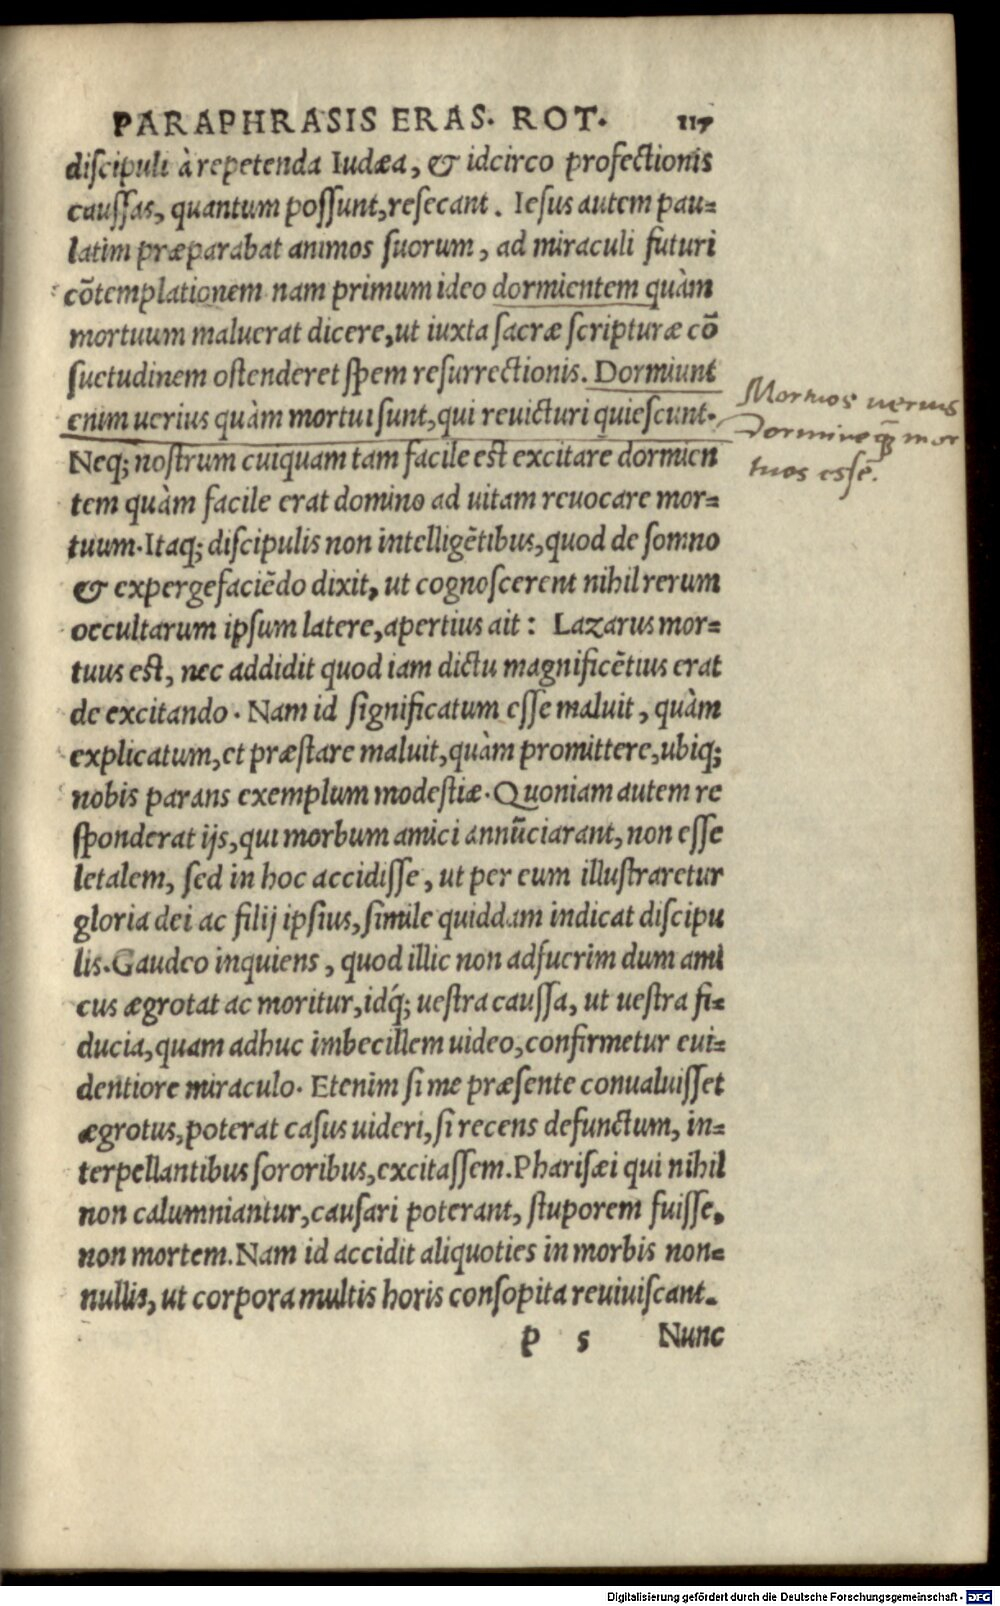 PARAPHRASIS ERAS. ROT. 117
diſcipuli à repetenda Iudæa, & idcirco profectionis
cauſſas, quantum poſſunt, reſecant. Ieſus autem pau=
latim præparabat animos ſuorum, ad miraculi futuri
cõtemplationem nam primum ideo dormientem quàm
mortuum maluerat dicere, ut iuxta ſacræ ſcripturæ cõ
ſuetudinem oſtenderet ſpem reſurrectionis. Dormiunt
enim uerius quàm mortui ſunt, qui reuicturi quieſcunt.
Neq; noſtrum cuiquam tam facile eſt excitare dormien
tem quàm facile erat domino ad uitam reuocare mor=
tuum. Itaq; diſcipulis non intelligẽtibus, quod de ſomno
& expergefaciẽdo dixit, ut cognoſcerent nihil rerum
occultarum ipſum latere, apertius ait: Lazarus mor=
tuus eſt, nec addidit quod iam dictu magnificẽtius erat
de excitando. Nam id ſignificatum eſſe maluit, quàm
explicatum, et præſtare maluit, quàm promittere, ubiq;
nobis parans exemplum modeſtiæ. Quoniam autem re
ſponderat ijs, qui morbum amici annũciarant, non eſſe
letalem, ſed in hoc accidiſſe, ut per eum illuſtraretur
gloria dei ac filij ipſius, ſimile quiddam indicat diſcipu
lis. Gaudeo inquiens, quod illic non adfuerim dum ami
cus ægrotat ac moritur, idq́; ueſtra cauſſa, ut ueſtra fi=
ducia, quam adhuc imbecillem uideo, confirmetur eui=
dentiore miraculo. Etenim ſi me præſente conualuiſſet
ægrotus, poterat caſus uideri, ſi recens defunctum, in=
terpellantibus ſororibus, excitaſſem. Phariſæi qui nihil
non calumniantur, cauſari poterant, ſtuporem fuiſſe,
non mortem. Nam id accidit aliquoties in morbis non=
nullis, ut corpora multis horis conſopita reuiuiſcant.
P 5 Nunc
Mortuos uerius
dormire q̃ mor
tuos eſſe.
Digitalisierung gefördert durch die Deutsche Forschungsgemeinschaft - DFG